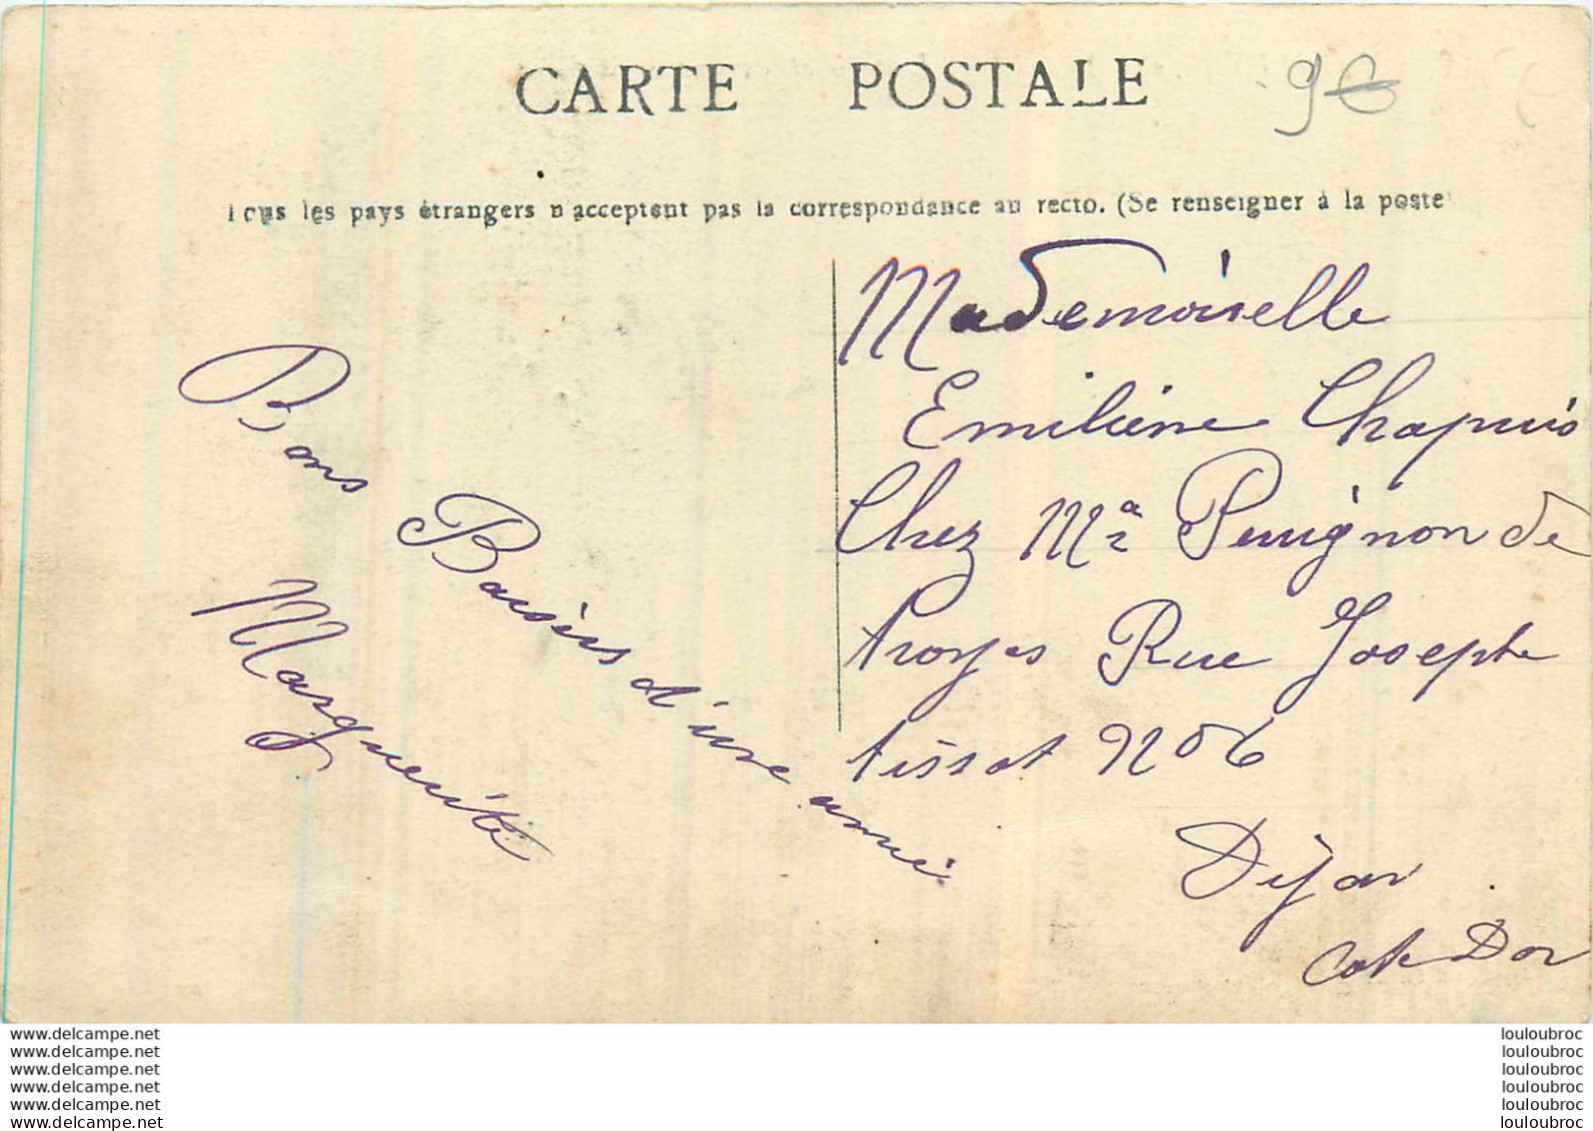 CARTE POSTALE
9€
Tous les pays étrangers n'acceptent pas la correspondance au recto. (Se renseigner à la poste
Bons Baisers d'une amie
Marguerite
Mademoiselle
Emiliene Chapuis
Chez Mr Perrignon de
troyes Rue Joseph
tissot No 6
Dijon
Cote Dor
www.delcampe.net
www.delcampe.net
www.delcampe.net
www.delcampe.net
www.delcampe.net
www.delcampe.net
louloubroc
louloubroc
louloubroc
louloubroc
louloubroc
louloubroc